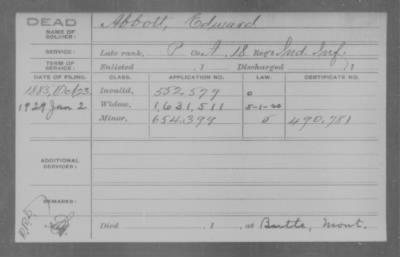 DEAD
NAME OF SOLDIER: Abbott, Edward
SERVICE: Late rank, P Co. A, 18 Reg't Ind. Inf.
TERM OF SERVICE: Enlisted , 1 Discharged , 1
DATE OF FILING. CLASS. APPLICATION NO. LAW. CERTIFICATE NO.
1883, Oct 23 Invalid, 552,579 0
1929 Jan 2 Widow, 1,631,511 5-1-20
Minor, 654,399 490,781
ADDITIONAL SERVICES:
REMARKS:
Died , 1 , at Butte, Mont.